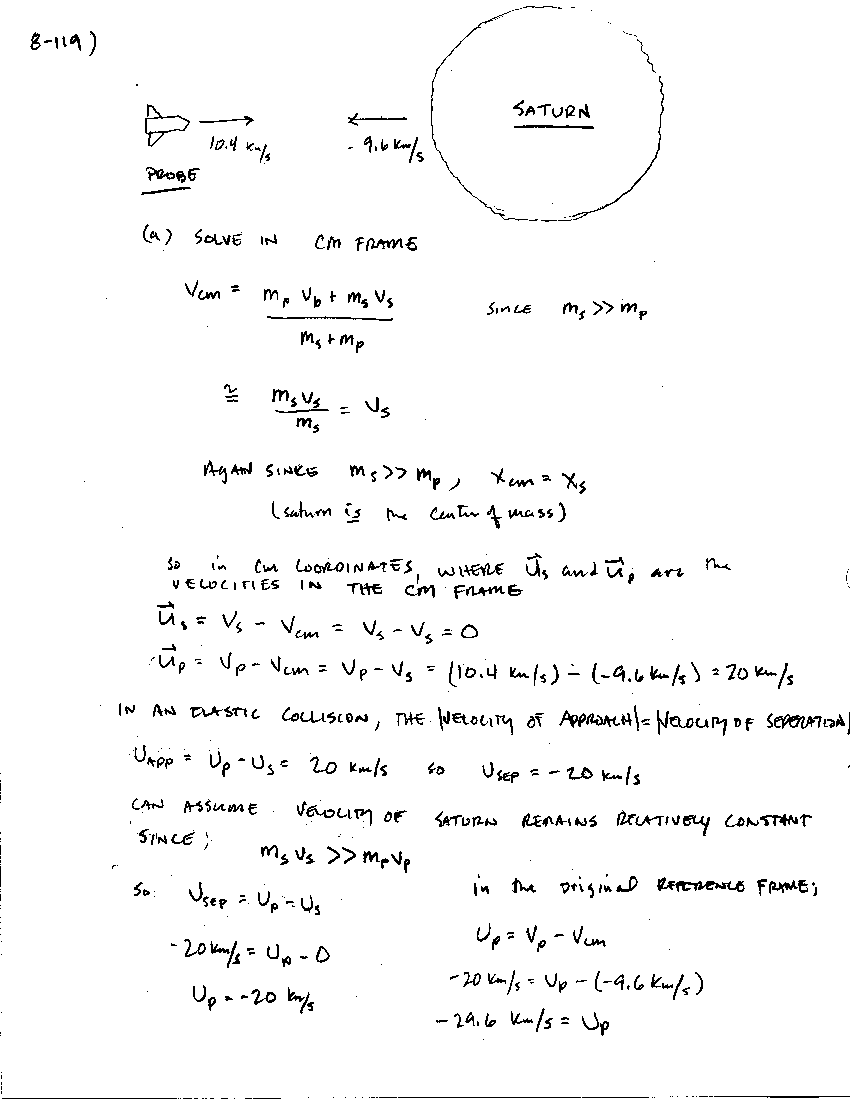 8-119)
SATURN
10.4 km/s
- 9.6 km/s
PROBE
(a) SOLVE IN CM FRAME
Vcm = mp Vp + ms Vs / ms + mp    SINCE ms >> mp
≅ ms Vs / ms = Vs
AGAIN SINCE ms >> mp, Xcm = Xs
(saturn is the center of mass)
SO in CM COORDINATES, WHERE U⃗s and U⃗p are the
VELOCITIES IN THE CM FRAME
U⃗s = Vs - Vcm = Vs - Vs = 0
U⃗p = Vp - Vcm = Vp - Vs = (10.4 km/s) - (-9.6 km/s) = 20 km/s
IN AN ELASTIC COLLISION, THE |VELOCITY OF APPROACH| = |VELOCITY OF SEPERATION|
UAPP = Up - Us = 20 km/s    so    USEP = -20 km/s
CAN ASSUME VELOCITY OF SATURN REMAINS RELATIVELY CONSTANT
SINCE; ms Vs >> mp Vp
So: Usep = Up - Us
-20 km/s = Up - 0
Up = -20 km/s
in the original REFERENCE FRAME;
Up = Vp - Vcm
-20 km/s = Up - (-9.6 km/s)
-29.6 km/s = Up